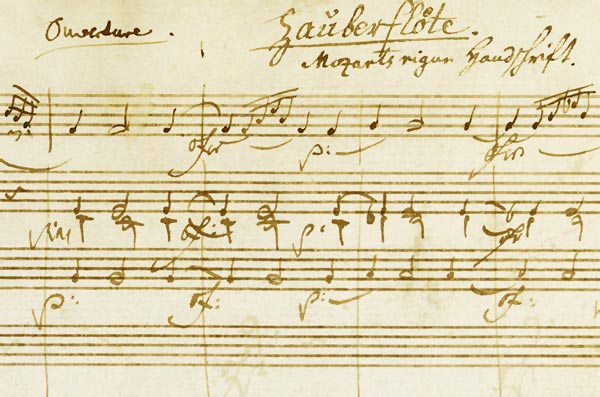 Ouverture.
Zauberflöte.
Mozarts eigne Handschrift.
p:
p:
p: p: